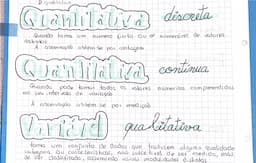 Quantitativa discreta
Quando toma um número finito ou numerável de valores
A observação obtém-se por contagem
Quantitativa contínua
Quando pode tomar todos os valores numéricos compreendidos
no seu intervalo de variação
A observação obtém-se por medição
Variável qualitativa
toma um conjunto de dados que incluem alguma qualidade
categoria ou característica, não suscetível de ser medida, mas
de ser classificada, assumindo várias modalidades